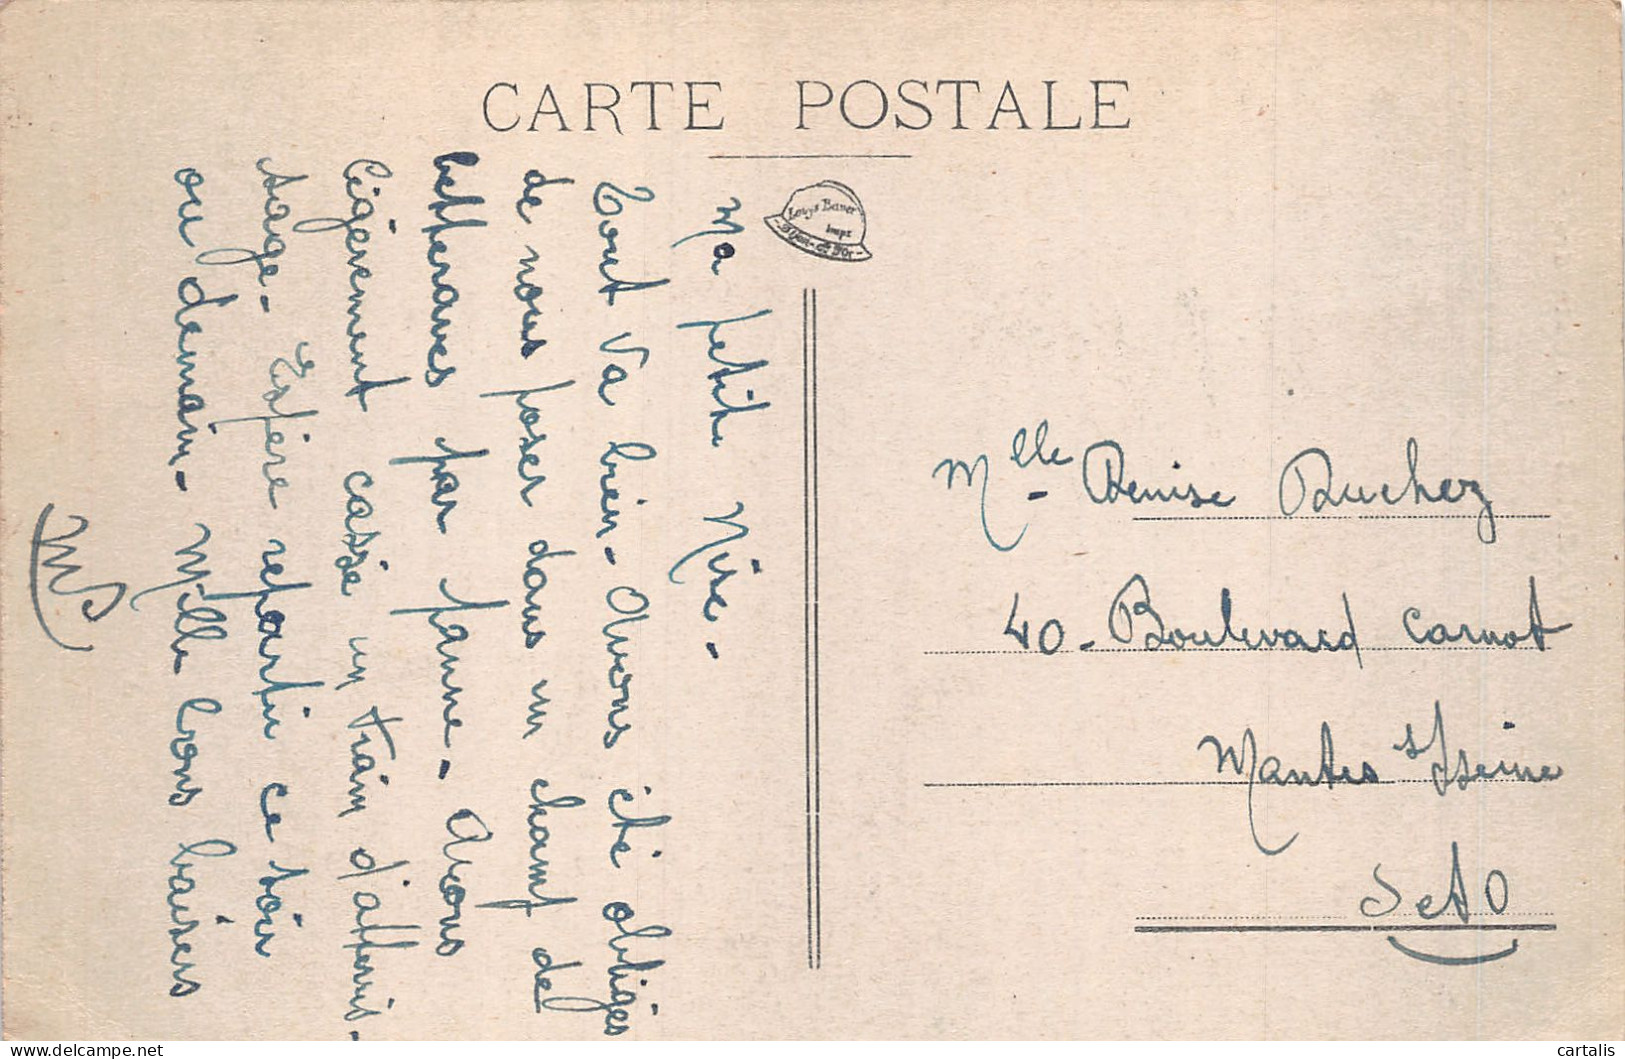 CARTE POSTALE
Louys Bauer
Impr
Dijon - Cte d'Or -
Ma petite Nise -
Tout va bien - Avons été obligés
de nous poser dans un champ de
betteraves par panne - Avons
légèrement cassé un train d'atterris-
sage - Espère repartir ce soir
ou demain - Mille bons baisers
Mlle - Denise Ruchez
40 - Boulevard Carnot
Mantes s/Seine
S et O
cartalis